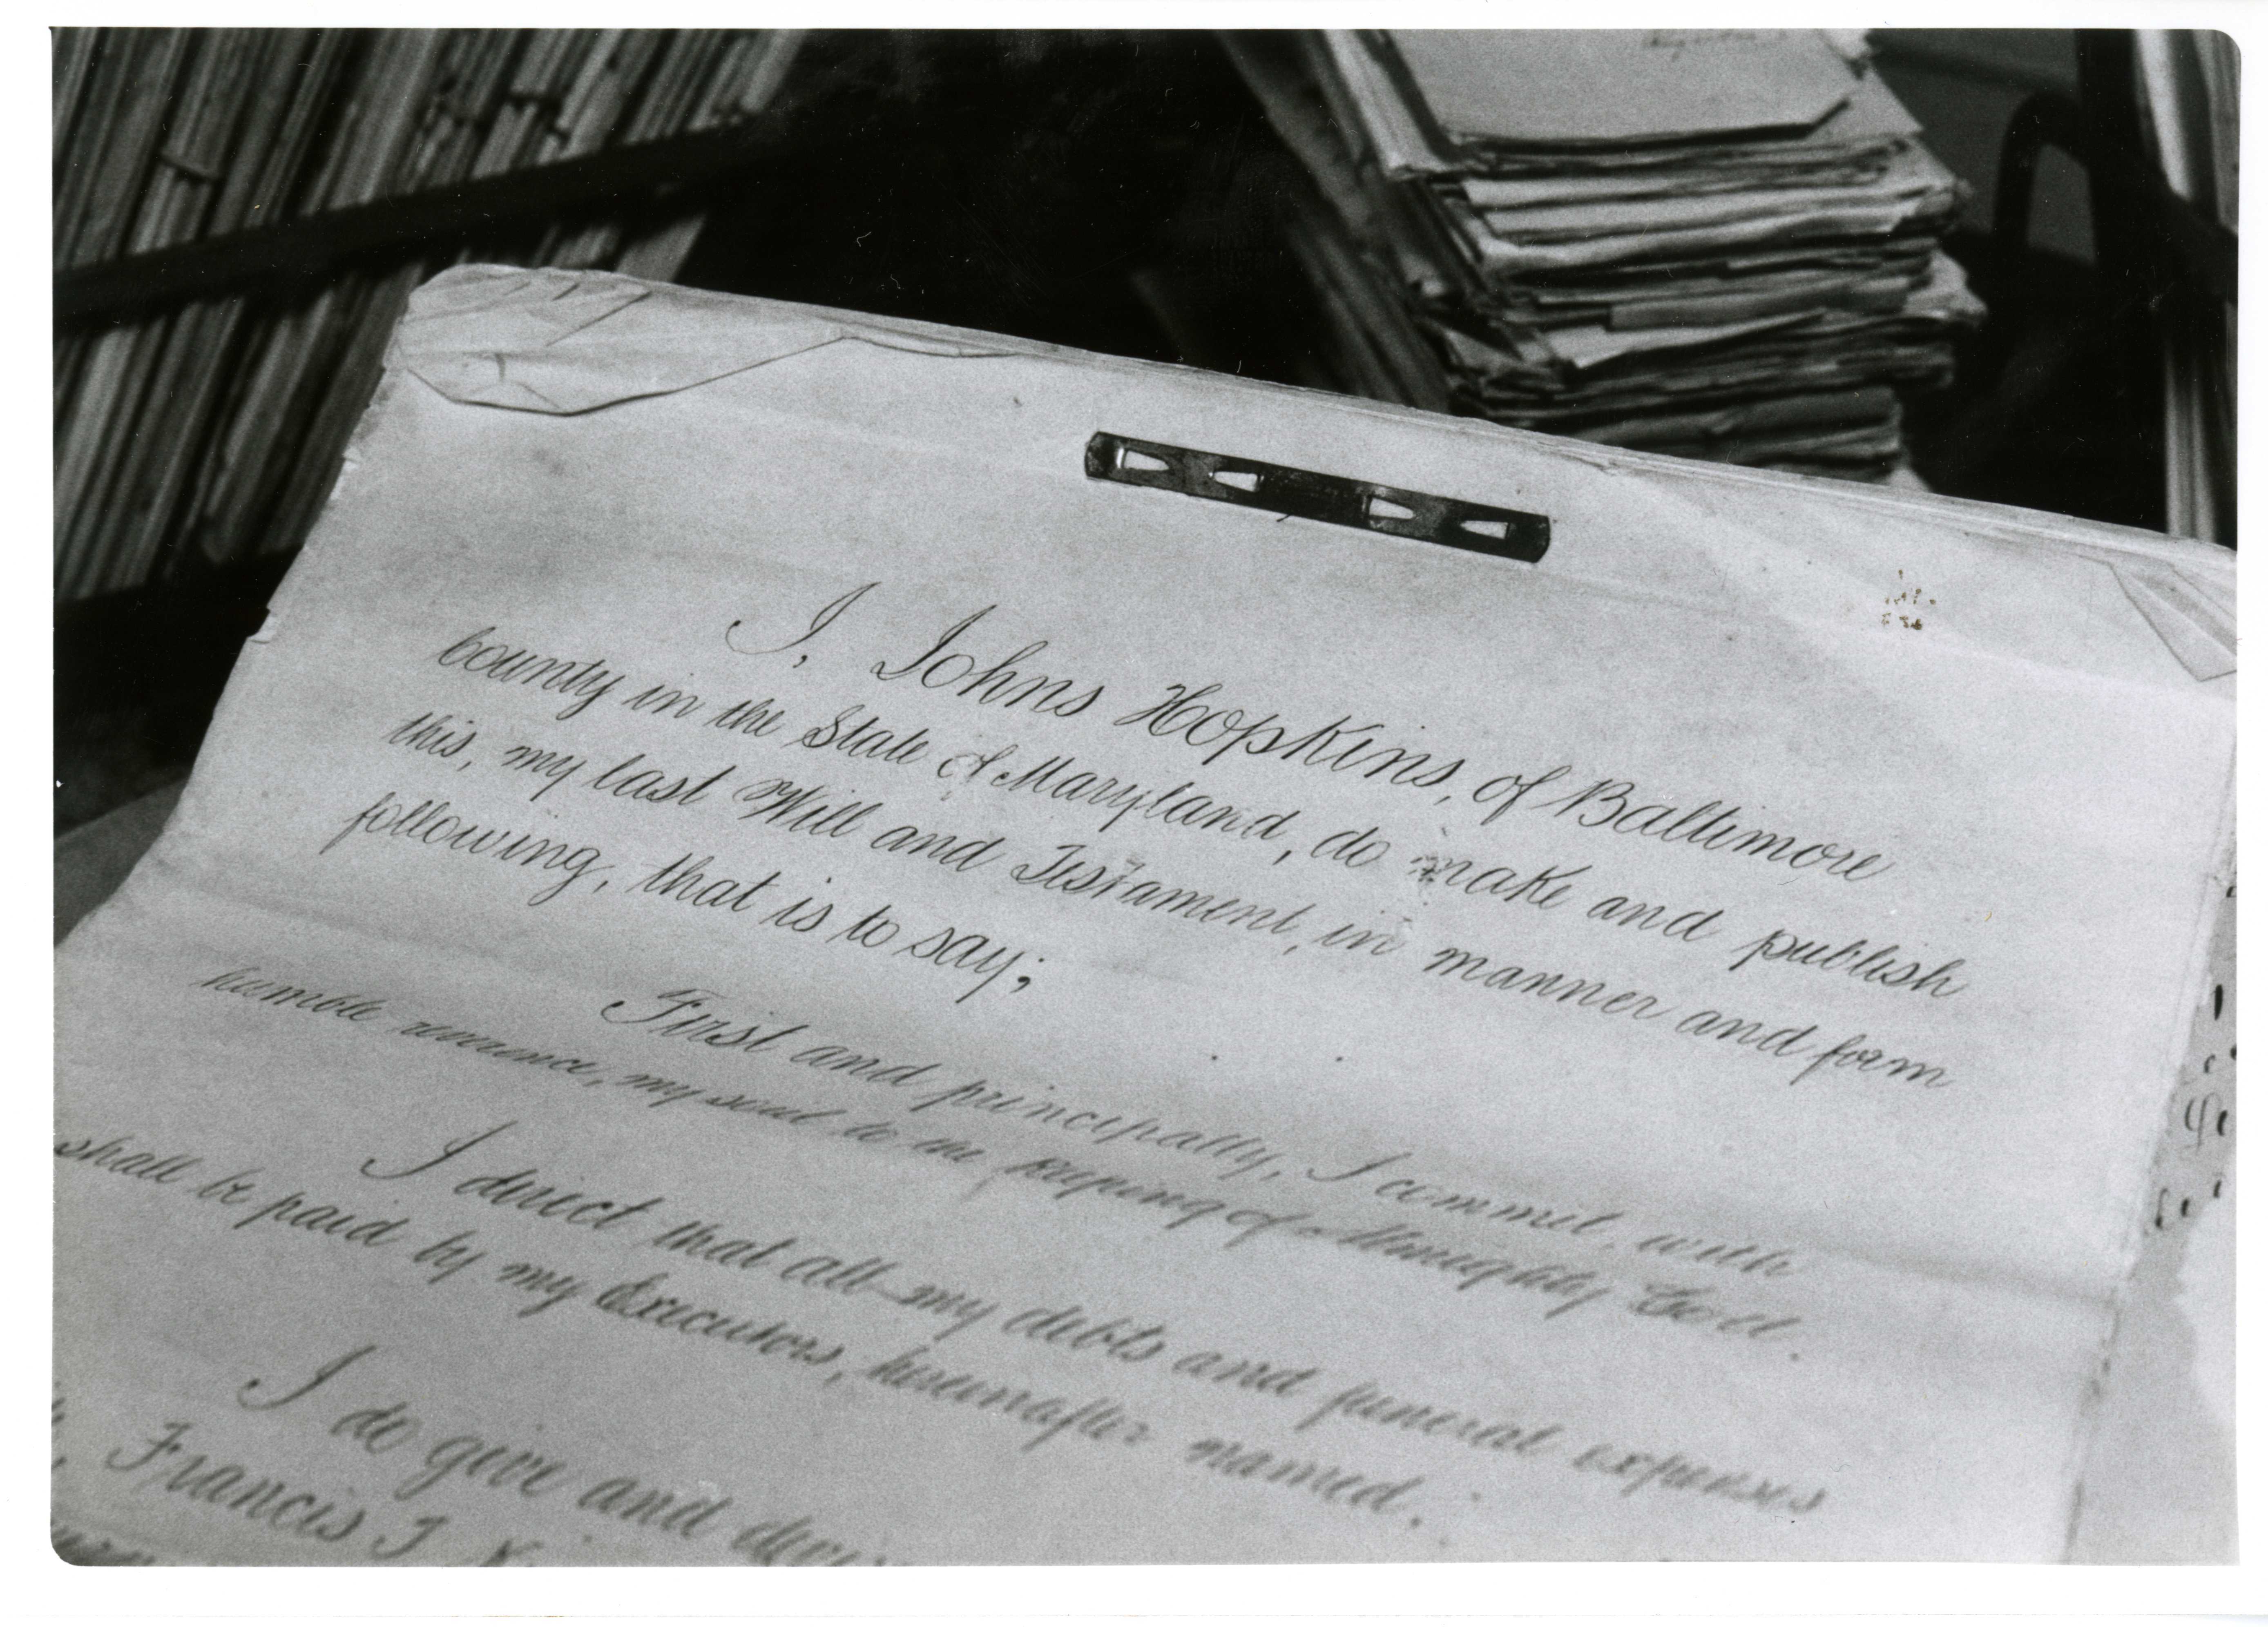 I, Johns Hopkins, of Baltimore
County in the State of Maryland, do make and publish
this, my last Will and Testament, in manner and form
following, that is to say;
First and principally, I commit, with
humble reverence, my soul to the keeping of Almighty God.
I direct that all my debts and funeral expenses
shall be paid by my Executors, hereinafter named.
I do give and
Francis T